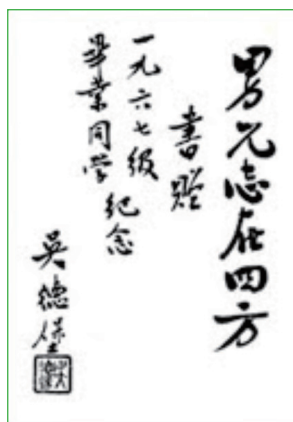 男儿志在四方
書贈
一九六七级
毕業同学纪念
吴德堡